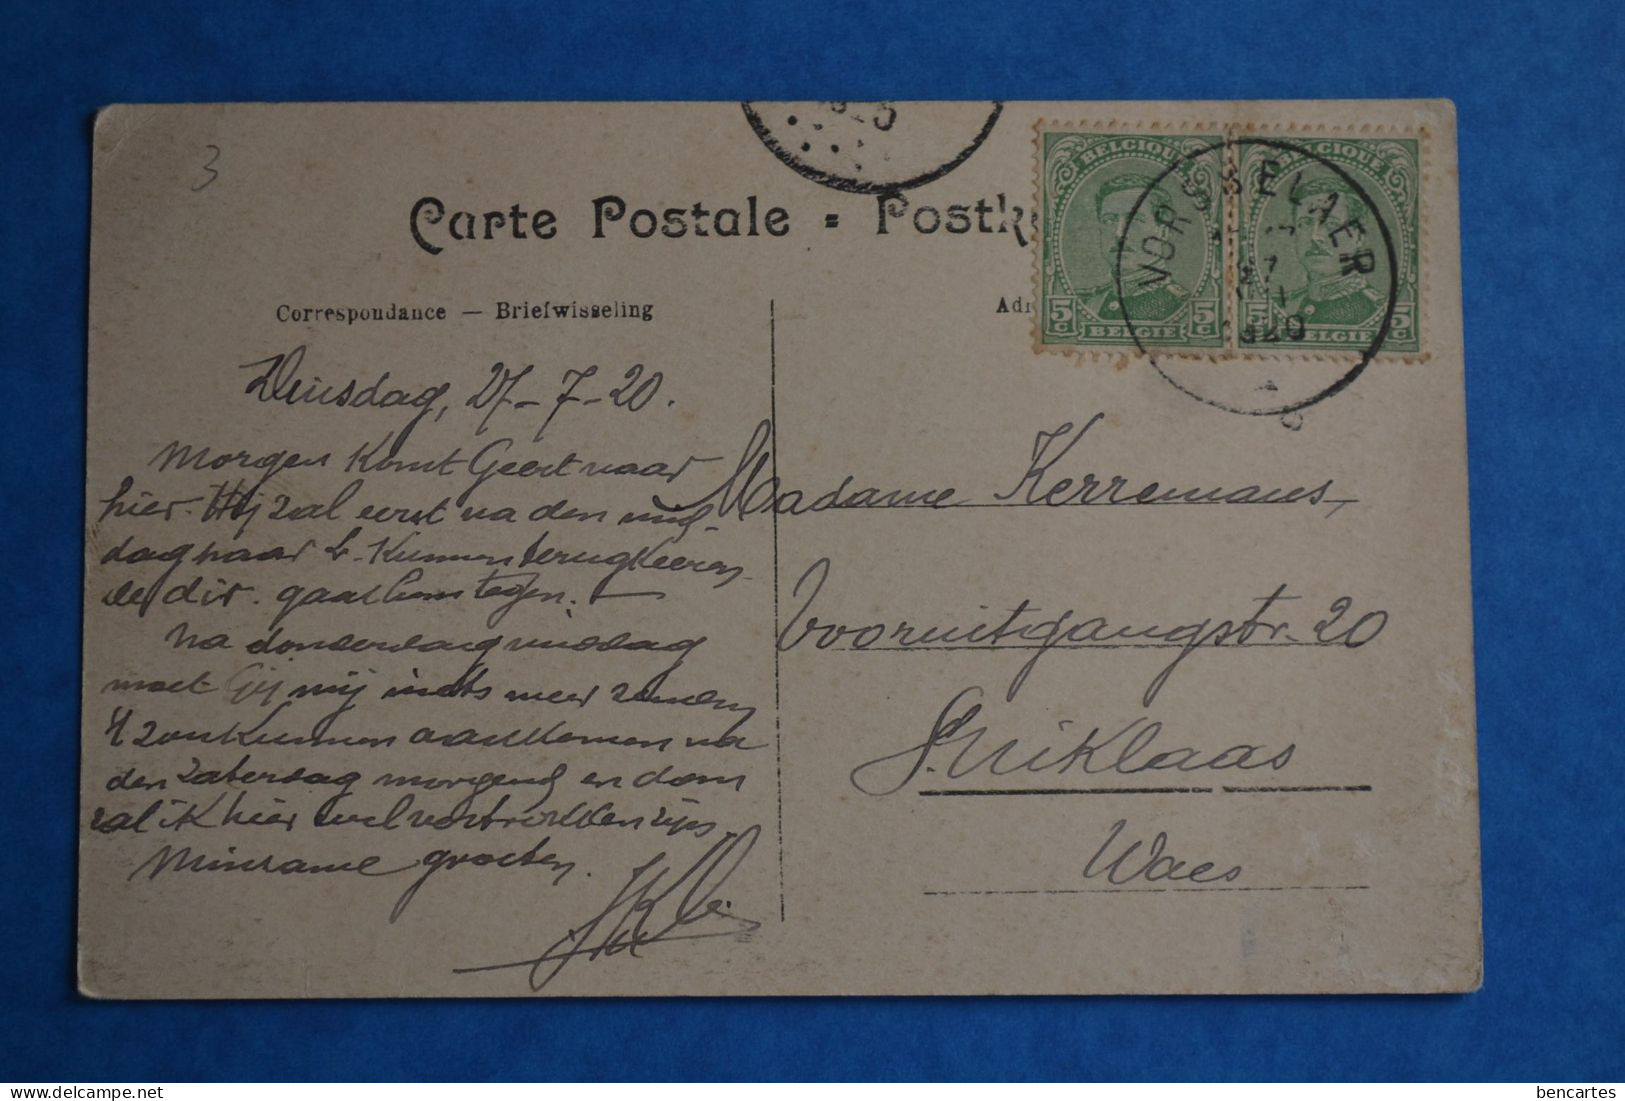 3
Carte Postale = Postk
Correspondance — Briefwisseling
Adr
BELGIQUE
BELGIQUE
5 C
5 C
5 C
5 C
BELGIE
BELGIE
VORSSELAER
27
1920
Dinsdag, 27-7-20.
Morgen komt Geert naar
hier. Hij zal eerst na den mid-
dag naar h. kunnen terugkeeren
dir. gaat hem tegen. —
Na donderdag
moet Gij mij niets meer zenden
't zou kunnen aankomen na
den Zaterdag morgend en dan
zal ik hier wel vertrokken zijn.
Minzame groeten.
Madame Kerremans,
Vooruitgangstr. 20
S. Niklaas
Waes
bencartes